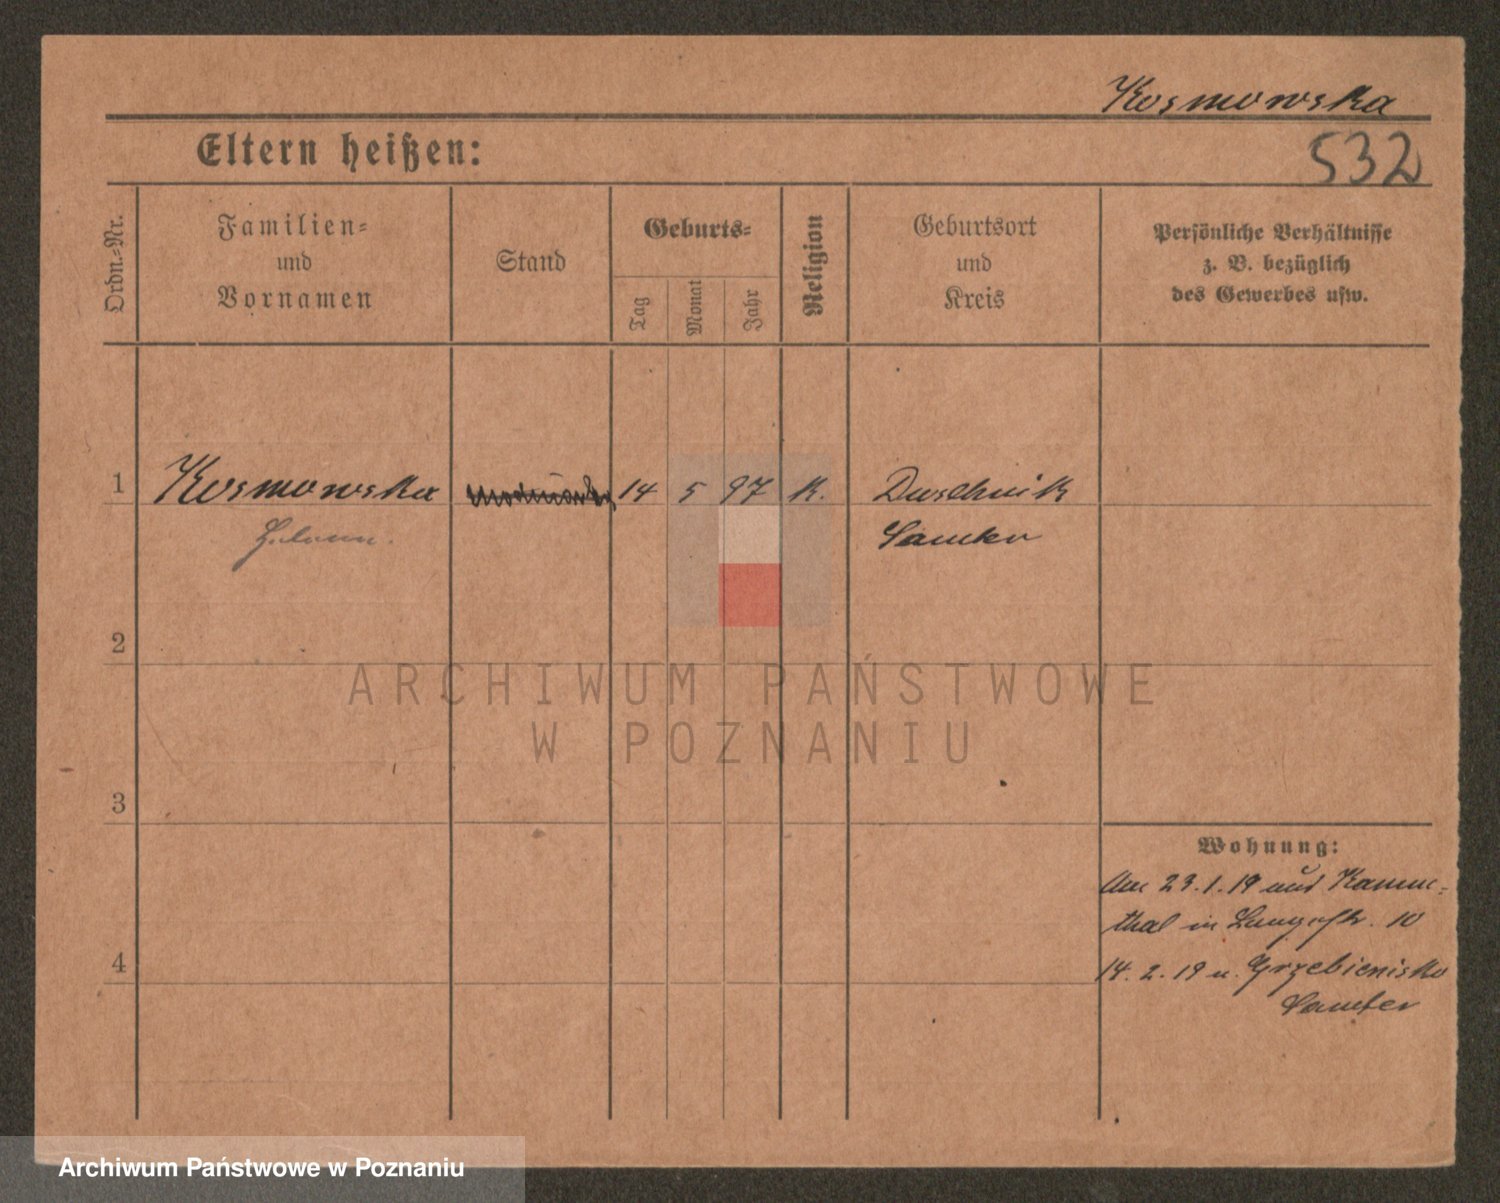 Kosmowska
Eltern heißen:
532
Ordn.-Nr.
Familien-
und
Vornamen
Stand
Geburts-
Tag
Monat
Jahr
Religion
Geburtsort
und
Kreis
Persönliche Verhältnisse
z. B. bezüglich
des Gewerbes usw.
1 Kosmowska 14 5 97 K. Duschnik
Samter
2
ARCHIWUM PAŃSTWOWE
W POZNANIU
3
Wohnung:
Am 23.1.19 aus
thal in Langestr. 10
4
14.2.19 n. Grzebienisko
Samter
Archiwum Państwowe w Poznaniu